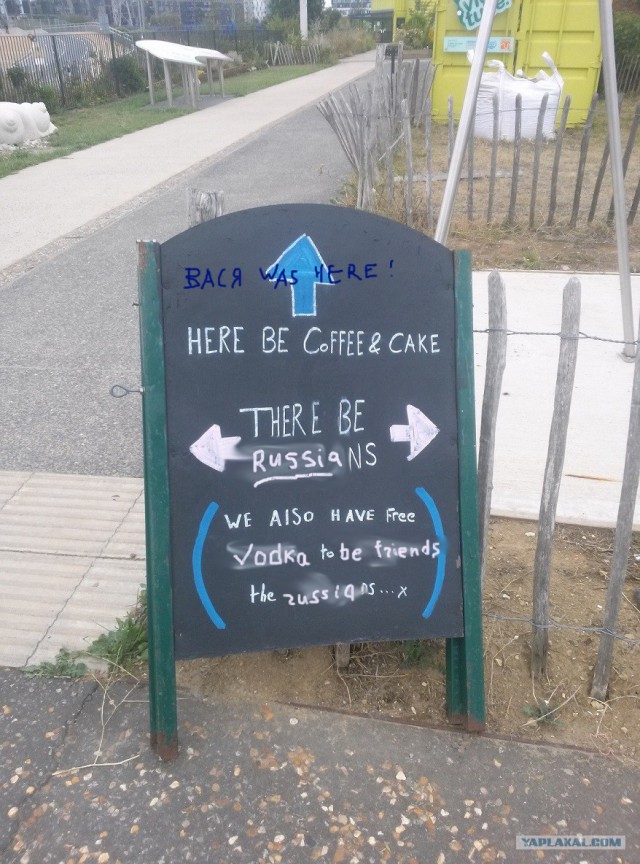 ВАСЯ WAS HERE!
HERE BE COFFEE & CAKE
THERE BE
RUSSIANS
WE AlSO HAVE free
Vodka to be friends
the russians...x
YAPLAKAL.COM